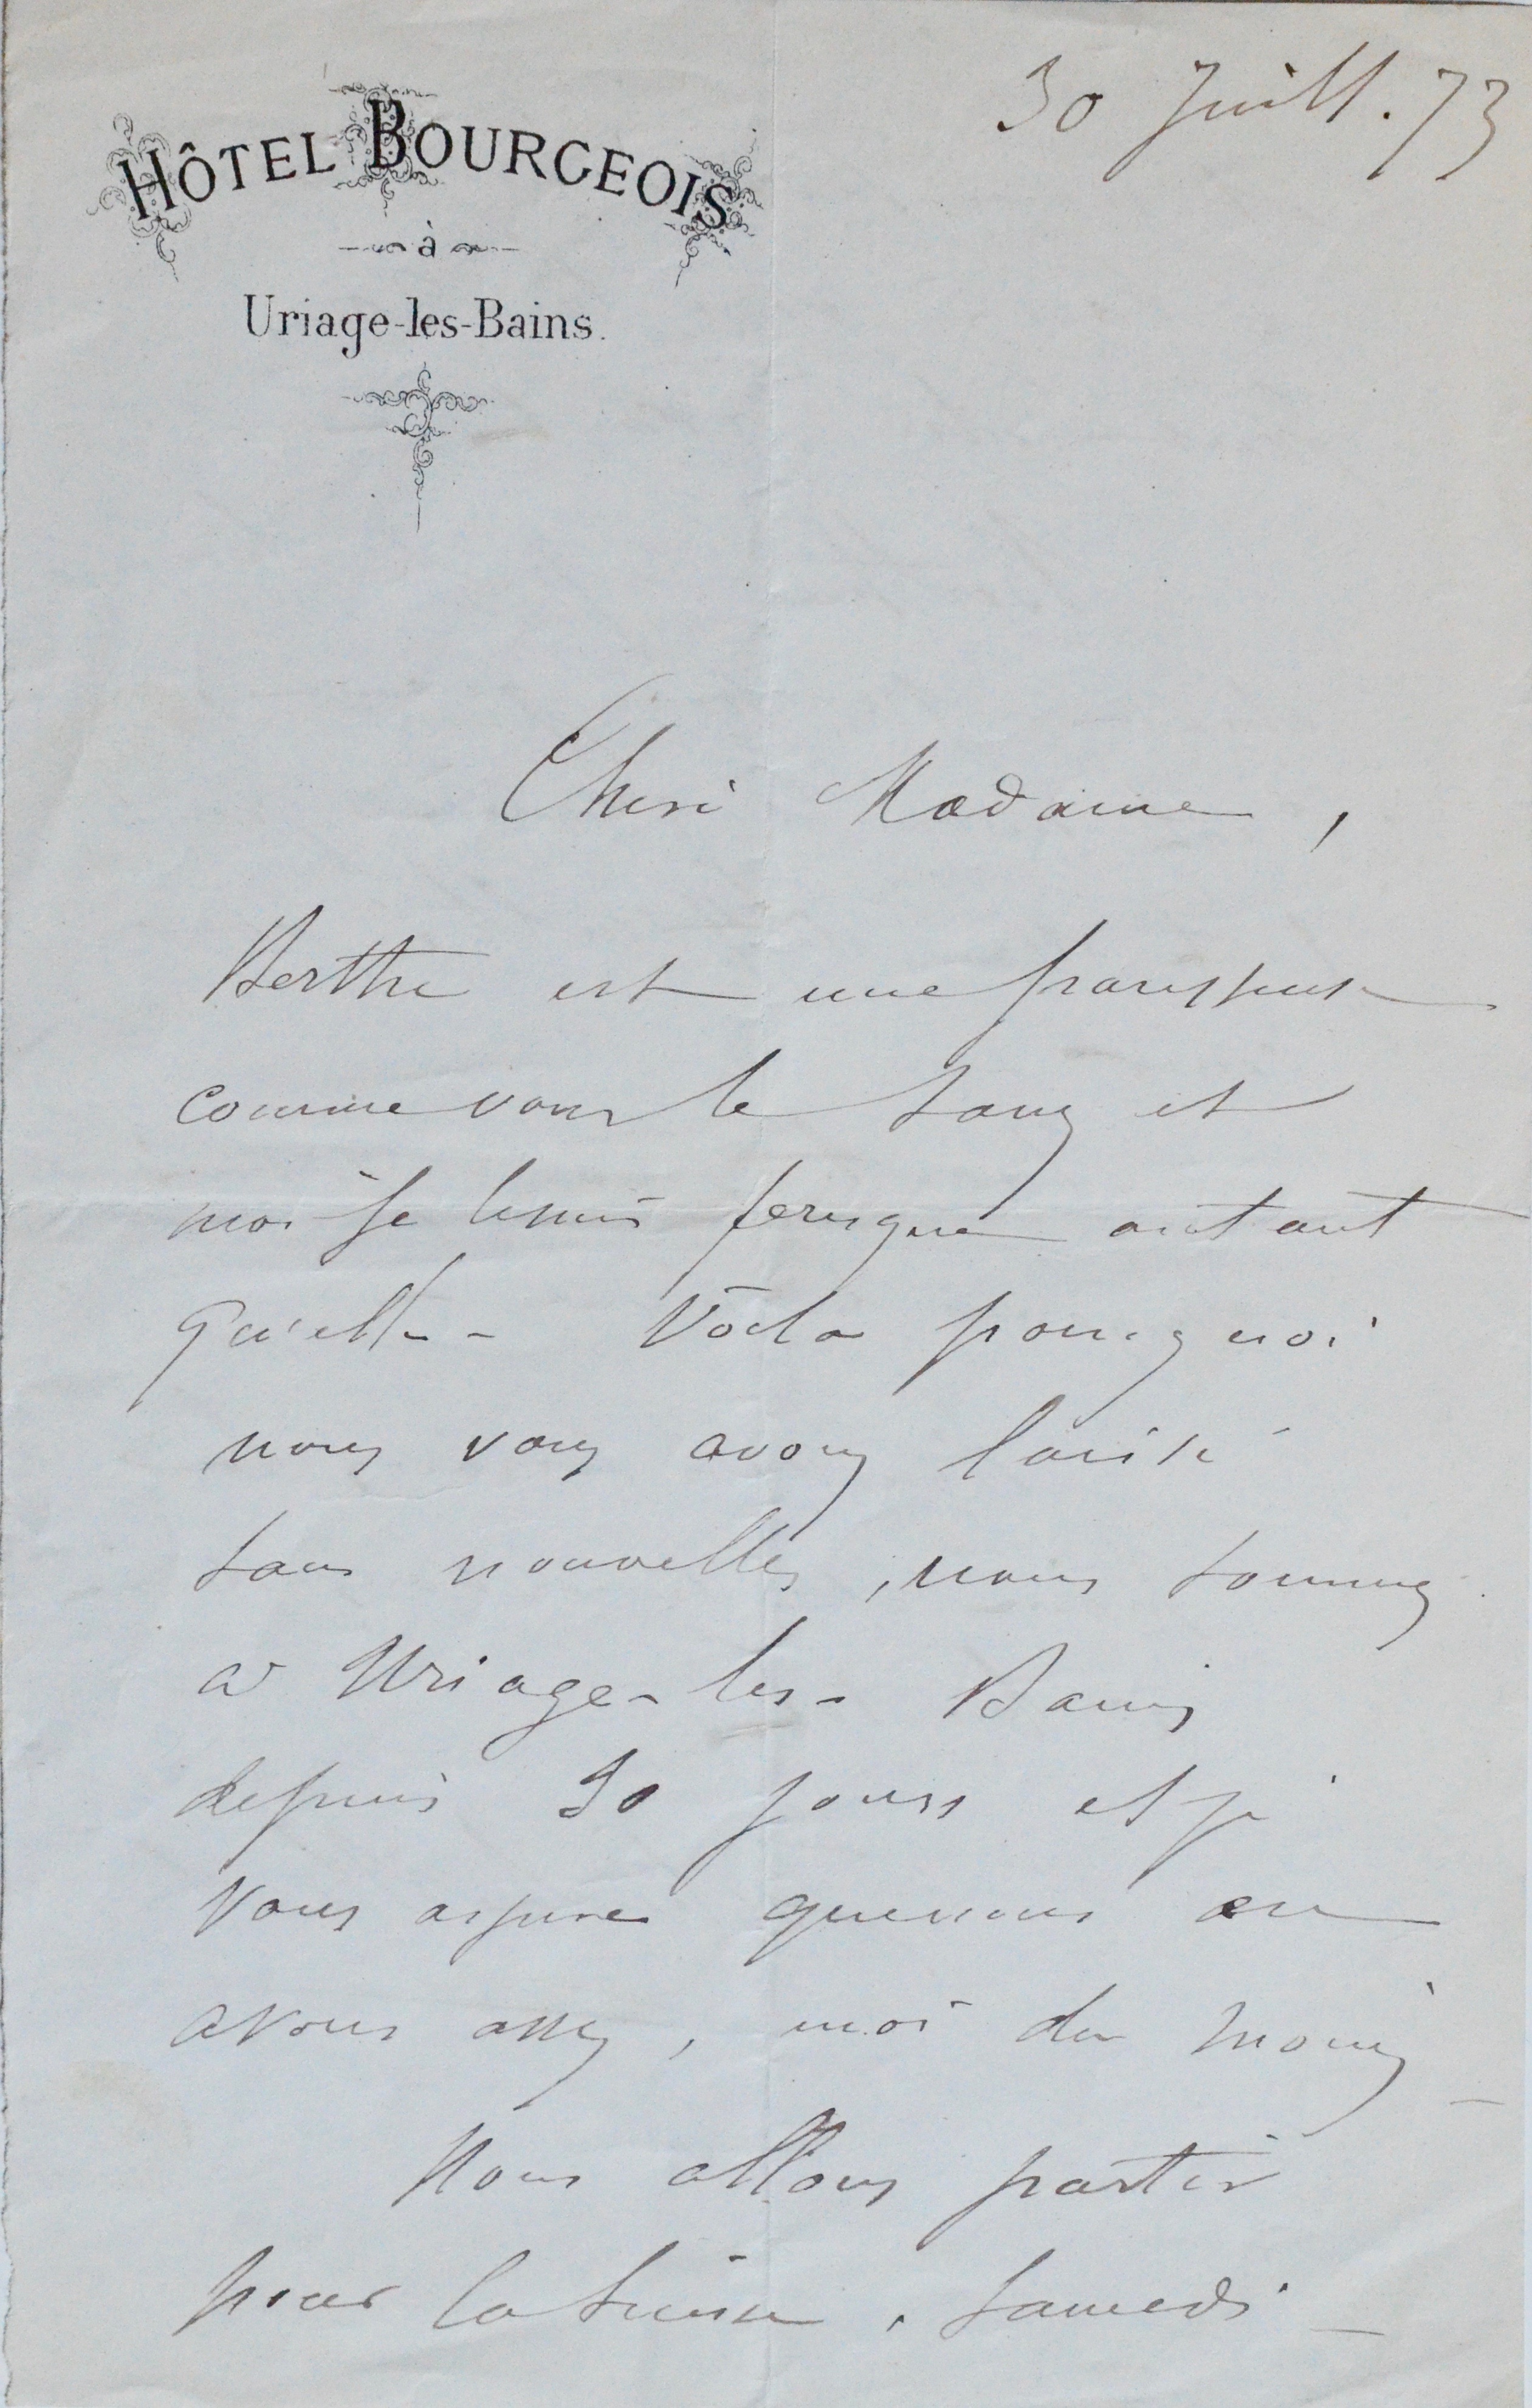 30 Juill. 73
HÔTEL BOURGEOIS
à
Uriage-les-Bains.
Chère Madame,
Berthe est une paresseuse
comme vous le savez et
moi je le suis presque autant
qu'elle - Voila pourquoi
nous vous avons laissé
sans nouvelles, nous sommes
à Uriage-les-Bains
depuis 30 jours et je
vous assure que nous en
avons assez, moi du moins -
Nous allons partir
pour la Suisse, samedi -